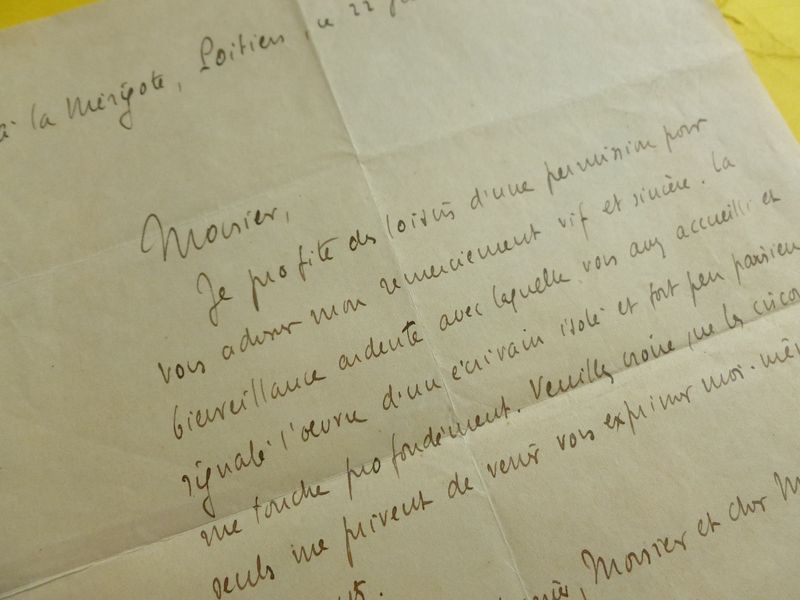 à la Mérigote, Poitiers, ce 22
Monsieur,
Je profite des loisirs d'une permission pour
vous adresser mon remerciement vif et sincère. La
bienveillance ardente avec laquelle vous avez accueilli et
signalé l'oeuvre d'un écrivain isolé et fort peu parisien
me touche profondément. Veuillez croire que les circon
seuls me privent de venir vous exprimer moi-mêm
Monsieur et cher M